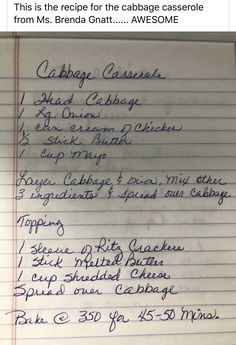 This is the recipe for the cabbage casserole
from Ms. Brenda Gnatt...... AWESOME
Cabbage Casserole
1 Head Cabbage
1 Lg. Onion
1 can cream of Chicken
1/2 Stick Butter
1 Cup Mayo
Layer Cabbage & onion, mix other
3 ingredients & spread over Cabbage
Topping
1 sleeve of Ritz Crackers
1 Stick melted Butter
1 cup shredded Cheese
Spread over Cabbage
Bake @ 350 for 45-50 mins.